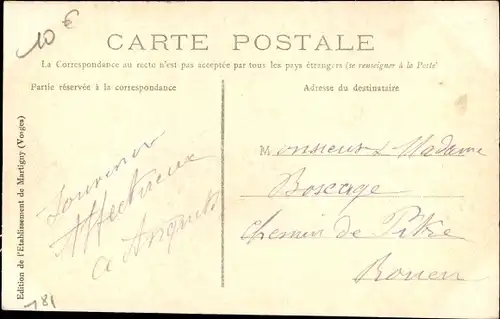 10 €
CARTE POSTALE
La Correspondance au recto n'est pas acceptée par tous les pays étrangers (se renseigner à la Poste)
Partie réservée à la correspondance
Adresse du destinataire
Souvenir
Affectueux
Monsieur & Madame
Boscage
Chemin de
Rouen
Edition de l'Etablissement de Martigny (Vosges)
781